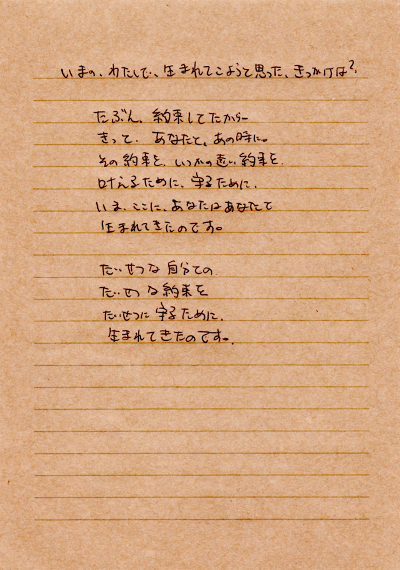 いまの、わたしで、生まれてこようと思った、きっかけは?
たぶん、約束してたから
きっと、あなたと、あの時に。
その約束を、いつかの遠い約束を
叶えるために、守るために、
いま、ここに、あなたはあなたで
生まれてきたのです。
たいせつな自分との
たいせつな約束を
たいせつに守るために、
生まれてきたのです。